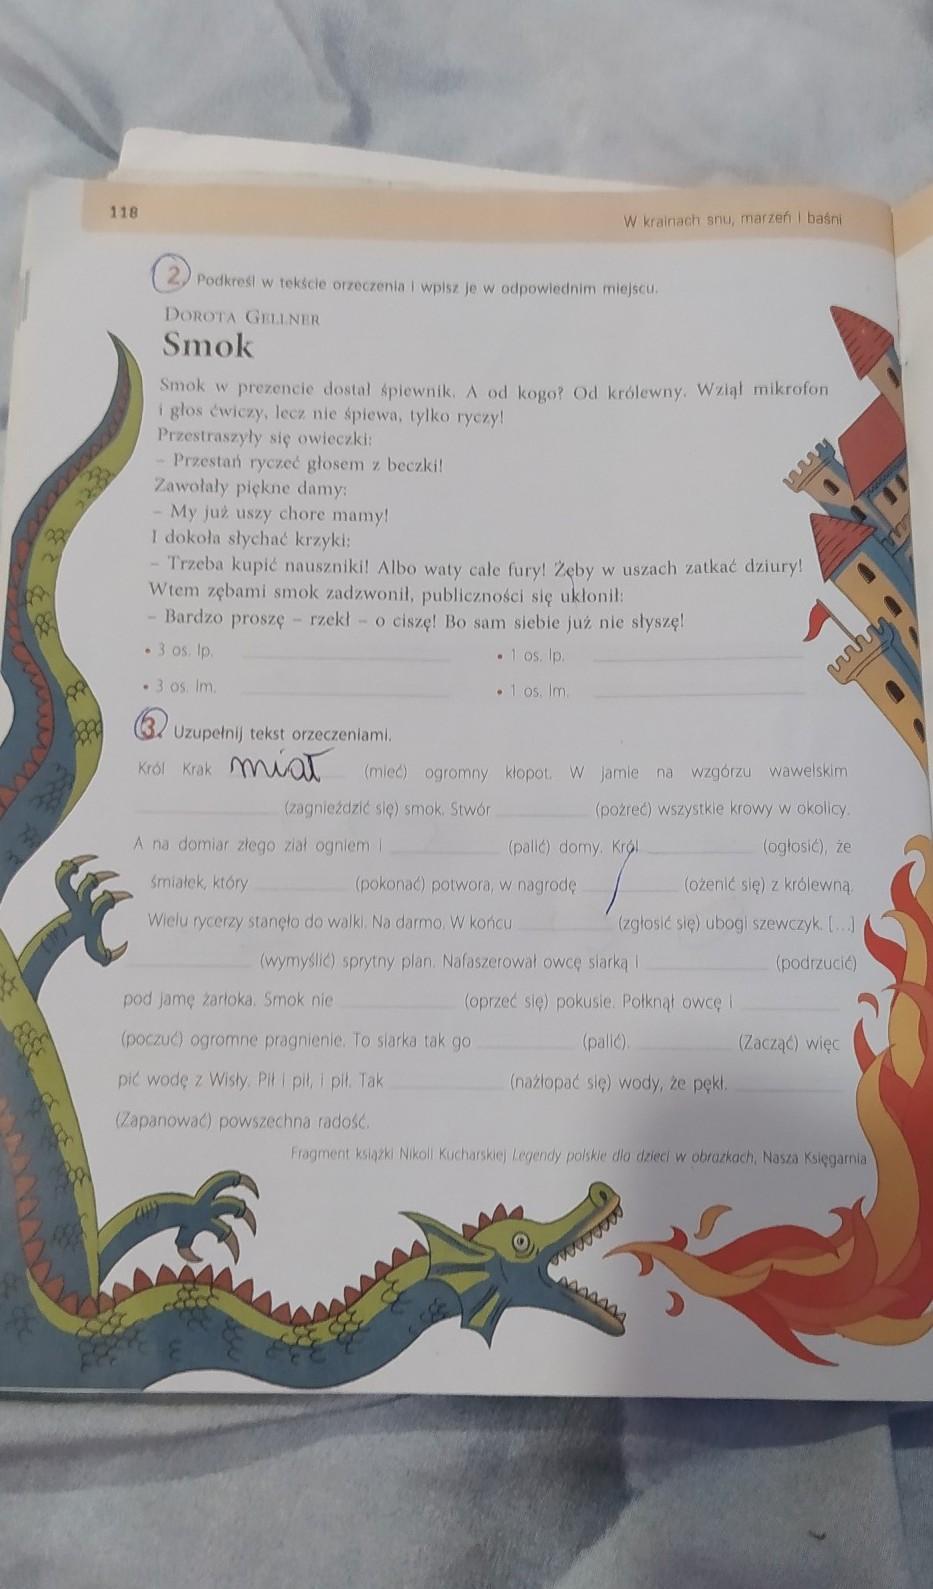 118
W krainach snu, marzeń i baśni
2. Podkreśl w tekście orzeczenia i wpisz je w odpowiednim miejscu.
DOROTA GELLNER
Smok
Smok w prezencie dostał śpiewnik. A od kogo? Od królewny. Wziął mikrofon
i głos ćwiczy, lecz nie śpiewa, tylko ryczy!
Przestraszyły się owieczki:
– Przestań ryczeć głosem z beczki!
Zawołały piękne damy:
– My już uszy chore mamy!
I dokoła słychać krzyki:
– Trzeba kupić nauszniki! Albo waty całe fury! Żeby w uszach zatkać dziury!
Wtem zębami smok zadzwonił, publiczności się ukłonił:
– Bardzo proszę – rzekł – o ciszę! Bo sam siebie już nie słyszę!
• 3 os. lp. • 1 os. lp.
• 3 os. lm. • 1 os. lm.
3. Uzupełnij tekst orzeczeniami.
Król Krak miał (mieć) ogromny kłopot. W jamie na wzgórzu wawelskim
(zagnieździć się) smok. Stwór (pożreć) wszystkie krowy w okolicy.
A na domiar złego ział ogniem i (palić) domy. Król (ogłosić), że
śmiałek, który (pokonać) potwora, w nagrodę (ożenić się) z królewną.
Wielu rycerzy stanęło do walki. Na darmo. W końcu (zgłosić się) ubogi szewczyk. [...]
(wymyślić) sprytny plan. Nafaszerował owcę siarką i (podrzucić)
pod jamę żarłoka. Smok nie (oprzeć się) pokusie. Połknął owcę i
(poczuć) ogromne pragnienie. To siarka tak go (palić). (Zacząć) więc
pić wodę z Wisły. Pił i pił, i pił. Tak (nażłopać się) wody, że pękł.
(Zapanować) powszechna radość.
Fragment książki Nikoli Kucharskiej Legendy polskie dla dzieci w obrazkach, Nasza Księgarnia